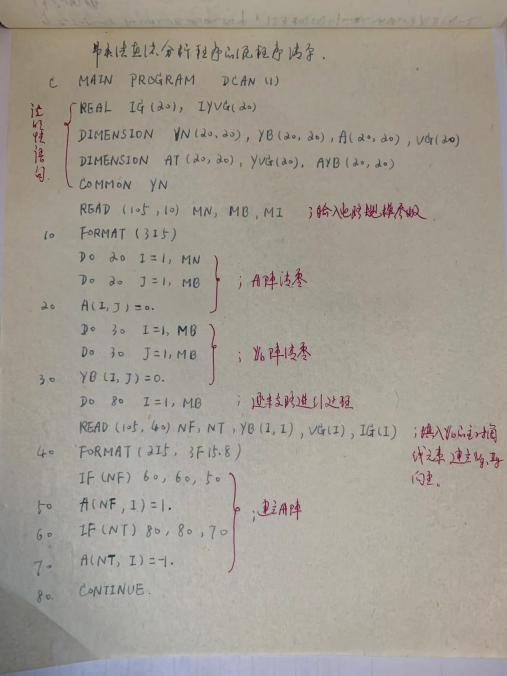 节点法直流分析程序的源程序清单.
C MAIN PROGRAM DCAN (1)
REAL IG(20), IYVG(20)
DIMENSION YN(20,20), YB(20,20), A(20,20), VG(20)
DIMENSION AT(20,20), YVG(20), AYB(20,20)
COMMON YN
说明性语句
READ (105,10) MN, MB, MI ;输入电路规模参数
10 FORMAT (3I5)
DO 20 I=1, MN
DO 20 J=1, MB ; A阵清零
20 A(I,J)=0.
DO 30 I=1, MB
DO 30 J=1, MB ; Yb阵清零
30 YB(I,J)=0.
DO 80 I=1, MB ; 逐条支路进行处理
READ (105,40) NF, NT, YB(I,I), VG(I), IG(I) ;填入Yb的主对角
40 FORMAT (2I5, 3F15.8) 线元素,建立Vg,Ig
IF(NF) 60, 60, 50 向量.
50 A(NF,I)=1. ;建立A阵
60 IF(NT) 80, 80, 70
70 A(NT,I)=-1.
80 CONTINUE.